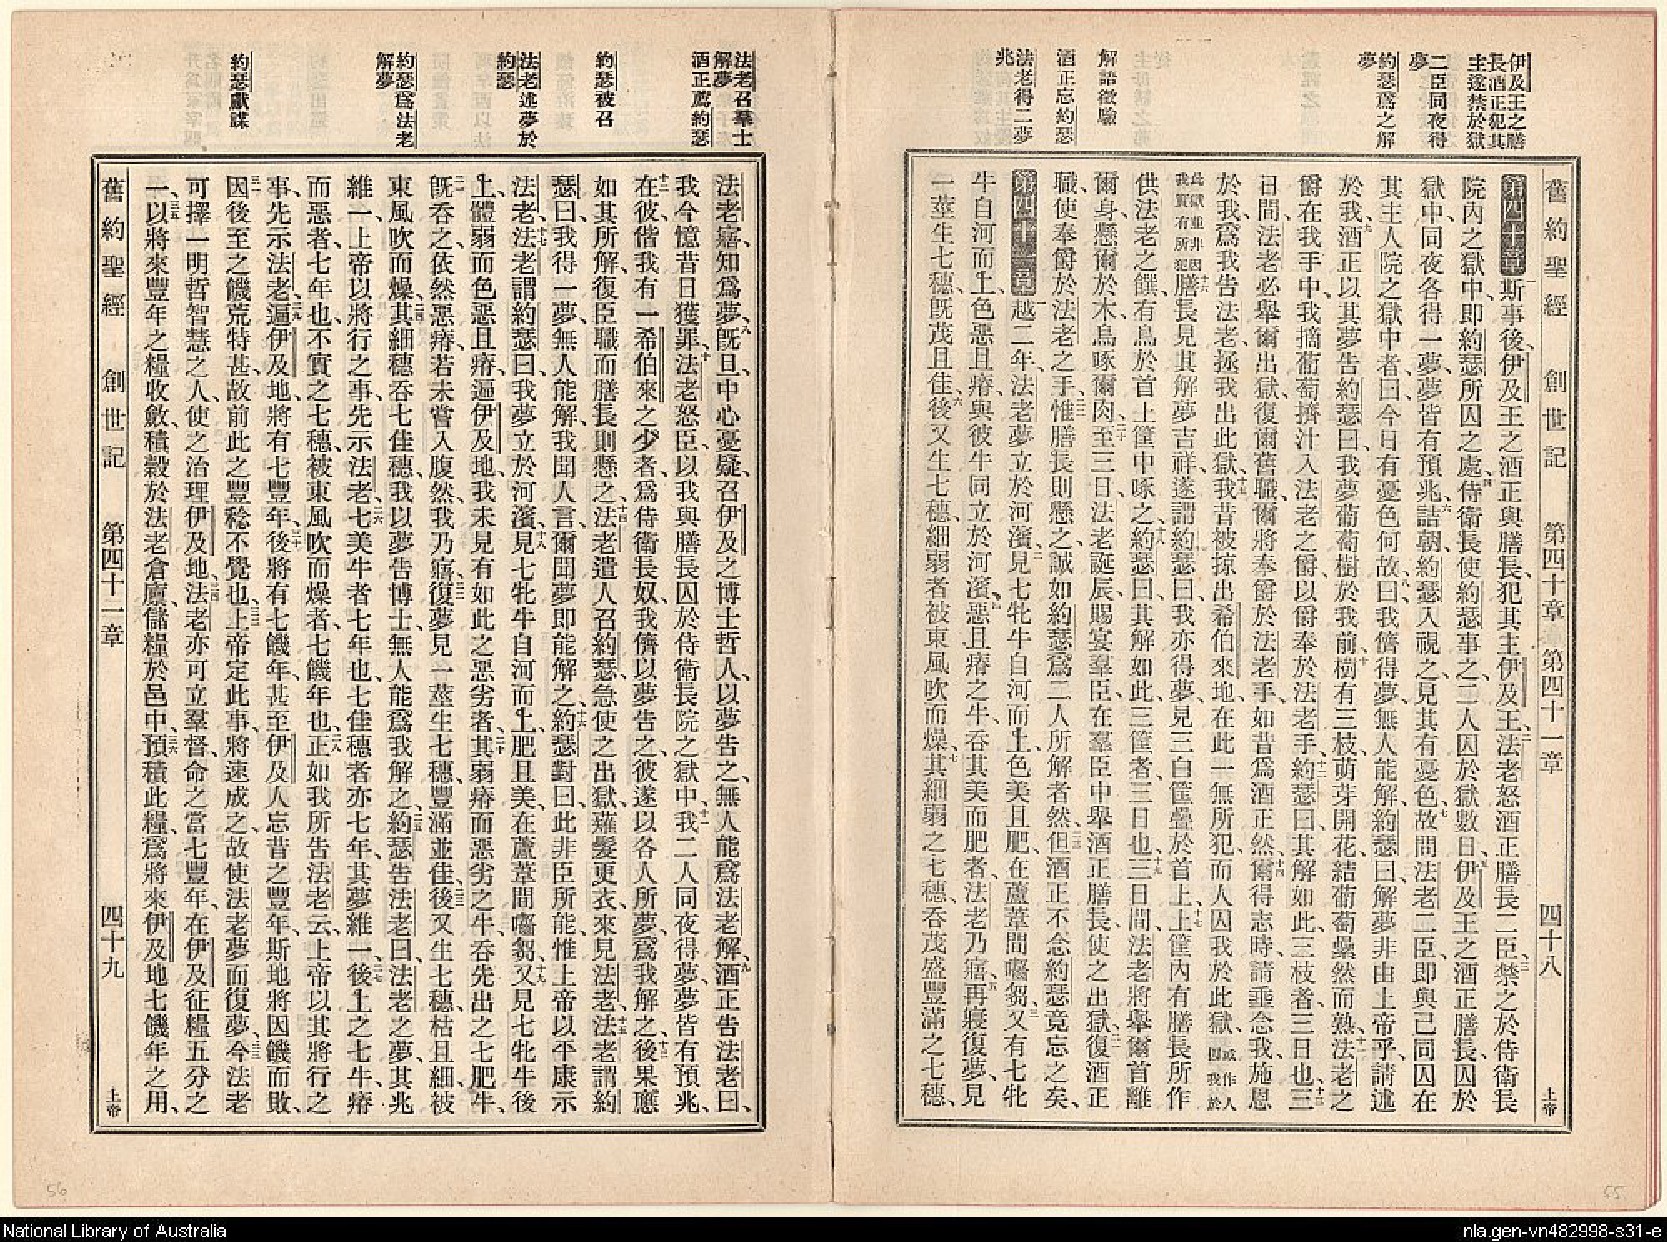 伊及王之膳
長酒正犯其
主遂禁於獄
二臣同夜得
夢
約瑟爲之解
夢
解語徵驗
酒正忘約瑟
法老得二夢
兆
舊約聖經 創世記 第四十章 第四十一章 四十八 上帝
第四十章 斯事後、伊及王之酒正與膳長、犯其主伊及王、法老怒酒正膳長二臣、禁之於侍衛長
院內之獄中、卽約瑟所囚之處、侍衛長使約瑟事之、二人囚於獄數日、伊及王之酒正膳長、囚於
獄中、同夜各得一夢、夢皆有預兆、詰朝、約瑟入視之、見其有憂色、故問法老二臣、卽與己同囚在
其主人院之獄中者、曰、今日有憂色何故、曰、我儕得夢、無人能解、約瑟曰、解夢非由上帝乎、請述
於我、酒正以其夢告約瑟曰、我夢葡萄樹於我前、樹有三枝、萌芽開花、結葡萄纍然而熟、法老之
爵在我手中、我摘葡萄、擠汁入法老之爵、以爵奉於法老手、約瑟曰、其解如此、三枝者、三日也、三
日間、法老必舉爾出獄、復爾舊職、爾將奉爵於法老手、如昔爲酒正然、爾得志時、請垂念我、施恩
於我、爲我告法老、拯我出此獄、我昔被掠出希伯來地、在此一無所犯、而人囚我於此獄、或作人囚我於
此獄並非因我實有所犯膳長見其解夢吉祥、遂謂約瑟曰、我亦得夢、見三白筐疊於首上、上筐內有膳長所作
供法老之饌、有鳥於首上筐中啄之、約瑟曰、其解如此、三筐者、三日也、三日間、法老將舉爾首離
爾身、懸爾於木、鳥啄爾肉、至三日法老誕辰、賜宴羣臣、在羣臣中舉酒正膳長、使之出獄、復酒正
職、使奉爵於法老之手、惟膳長則懸之、誠如約瑟爲二人所解者然、但酒正不念約瑟、竟忘之矣、
第四十一章 越二年、法老夢立於河濱、見七牝牛自河而上、色美且肥、在蘆葦間嚙芻、又有七牝
牛自河而上、色惡且瘠、與彼牛同立於河濱、惡且瘠之牛、吞其美而肥者、法老乃寤、再寢復夢、見
一莖生七穗、旣茂且佳、後又生七穗、細弱者被東風吹而燥、其細弱之七穗、吞茂盛豐滿之七穗、
法老召羣士
解夢
酒正薦約瑟
約瑟被召
法老述夢於
約瑟
約瑟爲法老
解夢
約瑟獻謀
法老寤、知爲夢、旣旦、中心憂疑、召伊及之博士哲人、以夢告之、無人能爲法老解、酒正告法老曰、
我今憶昔日獲罪、法老怒臣、以我與膳長囚於侍衛長院之獄中、我二人同夜得夢、夢皆有預兆、
在彼、偕我有一希伯來之少者、爲侍衛長奴、我儕以夢告之、彼遂以各人所夢、爲我解之、後果應
如其所解、復臣職而膳長則懸之、法老遣人召約瑟、急使之出獄、薙髮更衣、來見法老、法老謂約
瑟曰、我得一夢、無人能解、我聞人言、爾聞夢卽能解之、約瑟對曰、此非臣所能、惟上帝以平康示
法老、法老謂約瑟曰、我夢立於河濱、見七牝牛自河而上、肥且美、在蘆葦間嚙芻、又見七牝牛後
上、體弱而色惡且瘠、遍伊及地、我未見有如此之惡劣者、其弱瘠而惡劣之牛、吞先出之七肥牛、
旣吞之、依然惡瘠、若未嘗入腹然、我乃寤、復夢見一莖生七穗、豐滿並佳、後又生七穗、枯且細、被
東風吹而燥、其細穗吞七佳穗、我以夢告博士、無人能爲我解之、約瑟告法老曰、法老之夢、其兆
維一、上帝以將行之事、先示法老、七美牛者、七年也、七佳穗者、亦七年、其夢維一、後上之七牛、瘠
而惡者、七年也、不實之七穗、被東風吹而燥者、七饑年也、正如我所告法老云、上帝以其將行之
事、先示法老、遍伊及地將有七豐年、後將有七饑年、甚至伊及人忘昔之豐年、斯地將因饑而敗、
因後至之饑荒特甚、故前此之豐稔不覺也、上帝定此事、將速成之、故使法老夢而復夢、今法老
可擇一明哲智慧之人、使之治理伊及地、法老亦可立羣督、命之當七豐年、在伊及征糧五分之
一、以將來豐年之糧收斂、積穀於法老倉廩、儲糧於邑中、預積此糧、爲將來伊及地七饑年之用、
舊約聖經 創世記 第四十一章 四十九 上帝
56
55
National Library of Australia
nla.gen-vn482998-s31-e